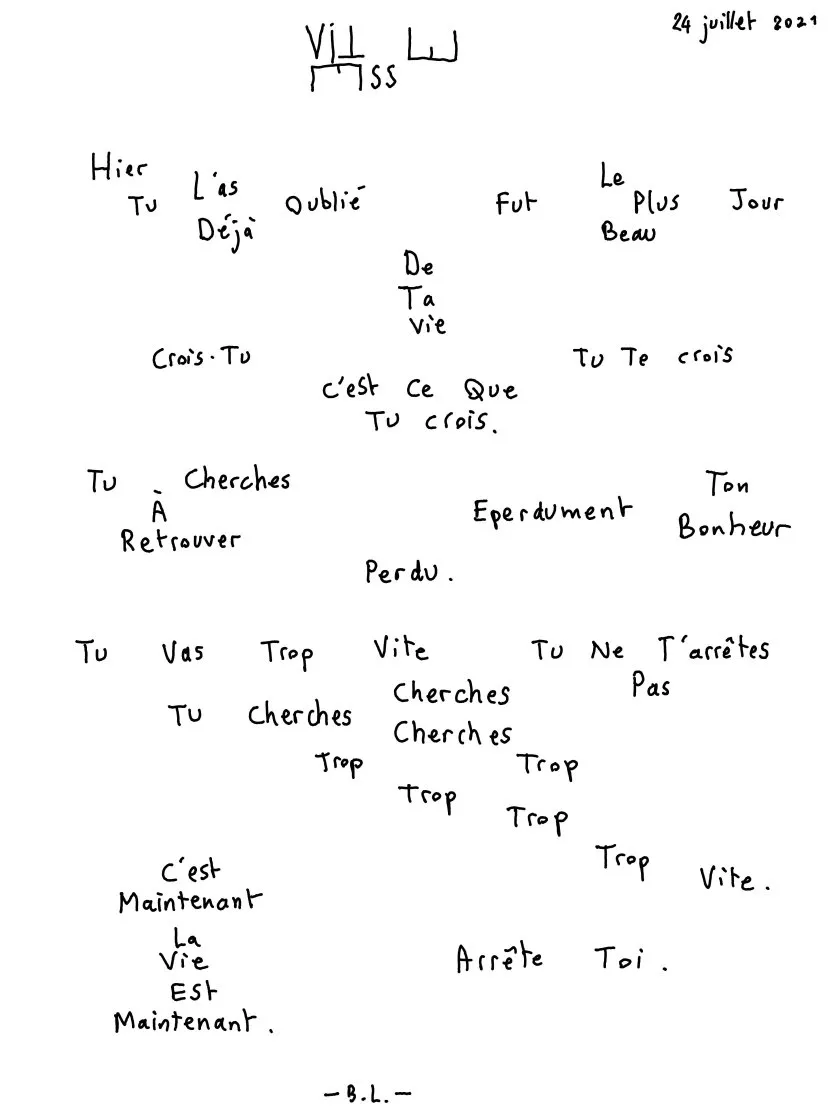 24 juillet 2021
ViT E
Ess
Hier
Tu L'as Oublié Fut Le Plus Jour
Déjà Beau
De
Ta
Vie
Crois-Tu Tu Te crois
C'est Ce Que
Tu crois.
Tu Cherches Ton
À Eperdument Bonheur
Retrouver
Perdu.
Tu Vas Trop Vite Tu Ne T'arrêtes
Cherches Pas
Tu Cherches Cherches
Trop Trop
Trop Trop
C'est Trop Vite.
Maintenant
La
Vie Arrête Toi.
Est
Maintenant.
– B.L. –